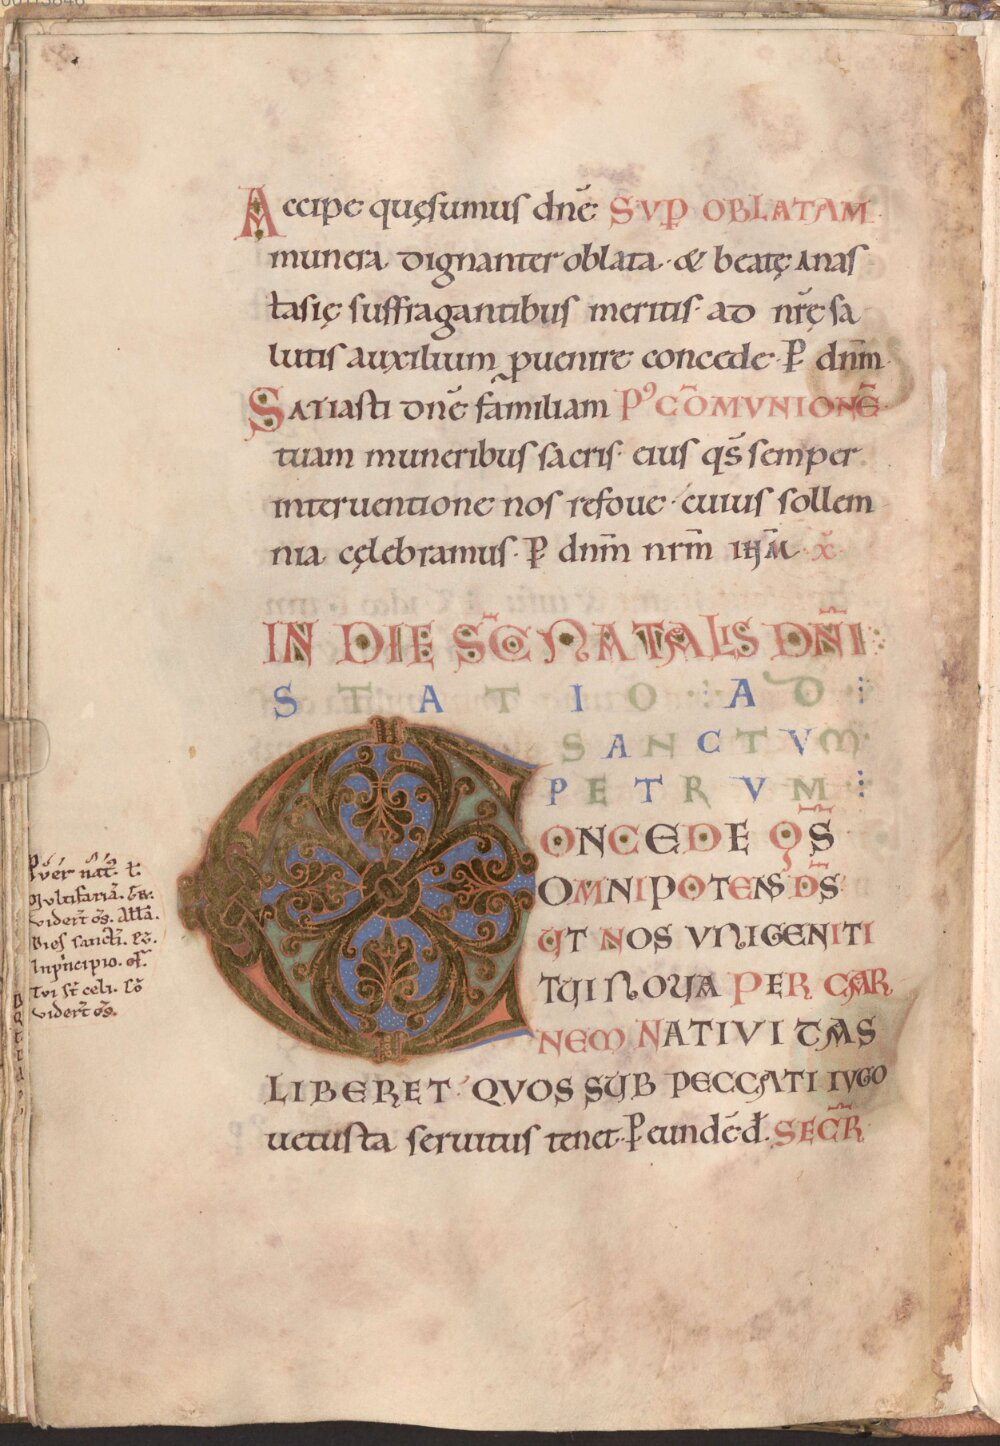 Accipe quęsumus dnē SVP̄ OBLATAM
munera dignanter oblata · & beatę anas
tasię suffragantibus meritis · ad nr̄ę sa
lutis auxilium ꝓuenire concede · P̄ dnm̄
Satiasti dnē familiam PꝰCŌMVNIONĒ
tuam muneribus sacris · eius qs̄ semper
interuentione nos refoue · cuius sollem
nia cęlebramus · P̄ dnm̄ nrm̄ ihm̄ · x̄
IN DIE SC̄ NATALIS DN̄I
STATIO · AD
SANCTVM
PETRVM
ONCEDE QS̄
OMNIPOTENS D̄S
UT NOS VNIGENITI
TUI NOUA PER CAR
NEM NATIVITAS
LIBERET QVOS SUB PECCATI IUGO
uetusta seruitus tenet · P̄ eundē d̄. SECR̄
Pver nat̄. ł.
Multifariā.
vidert̄ ōs. Allā.
Dies sanctī. Ev̄.
Inprincipio. of̄.
Tvi st̄ celi. Cō
viderт̄ ōs.